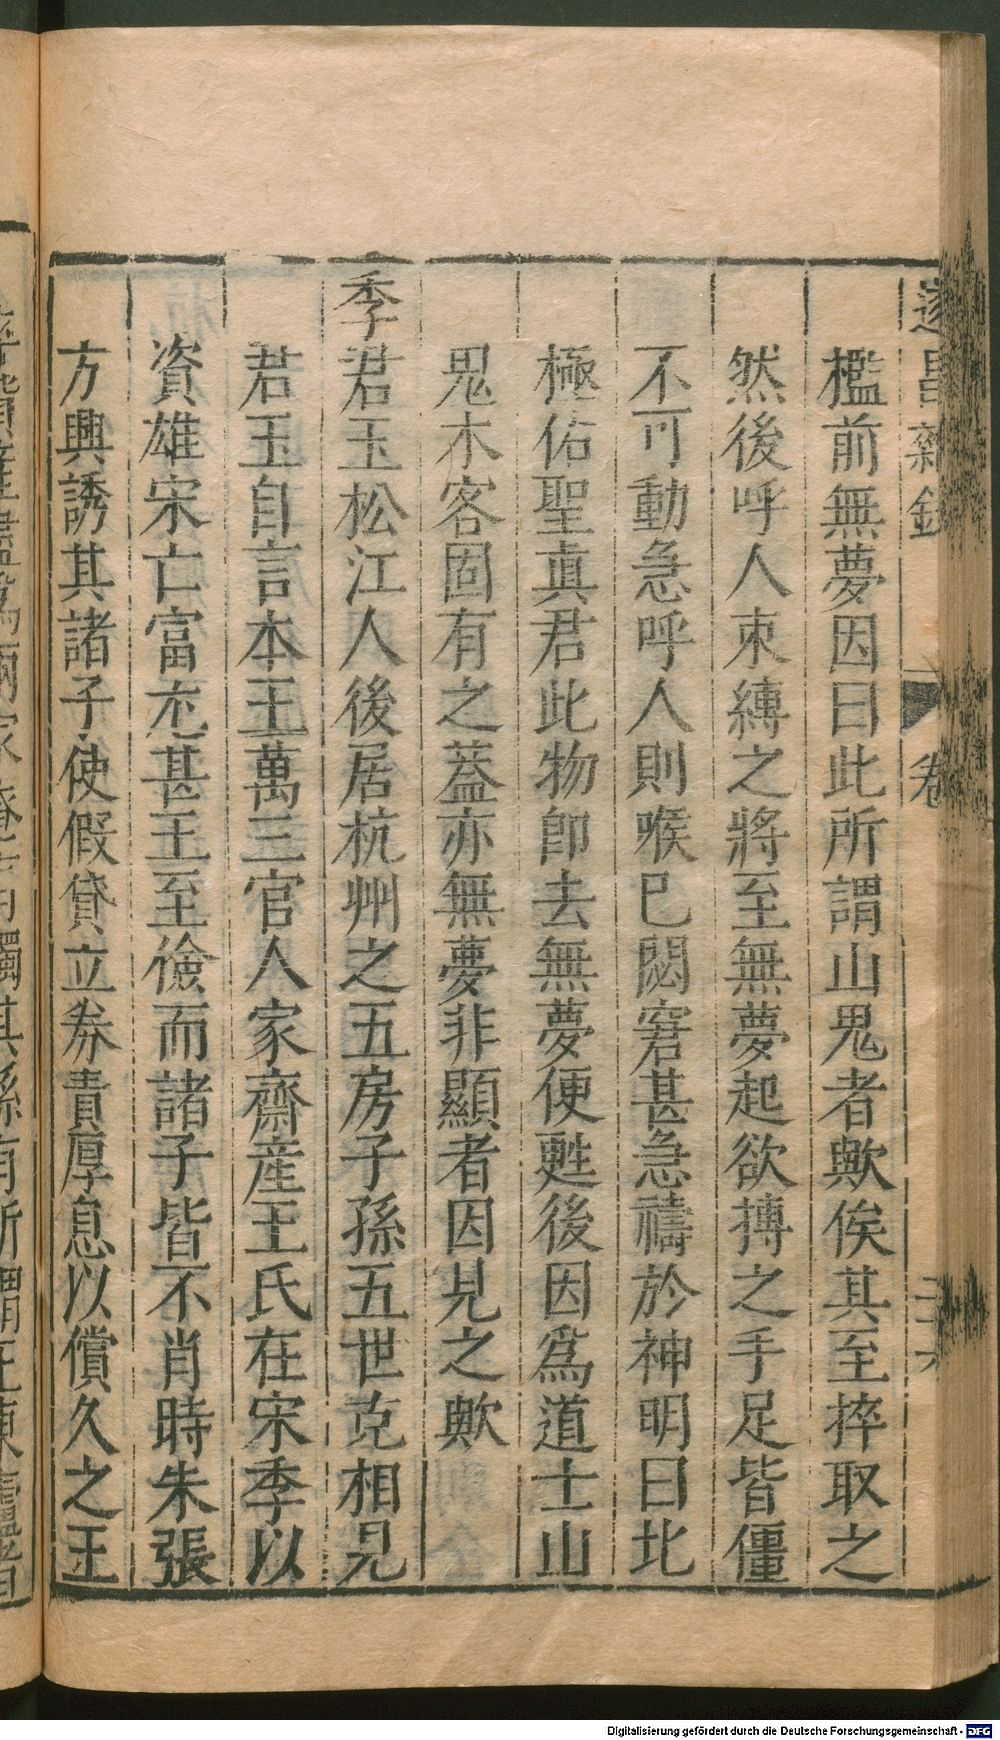 遂昌雜錄
卷
檻前無夢因曰此所謂山鬼者歟俟其至捽取之
然後呼人束縛之將至無夢起欲搏之手足皆僵
不可動急呼人則喉已閟窘甚急禱於神明曰北
極佑聖真君此物即去無夢便甦後因為道士山
鬼木客固有之蓋亦無夢非顯者因見之歟
季君玉松江人後居杭州之五房子孫五世克相見
君玉自言本王萬三官人家齋産王氏在宋季以
資雄宋亡富尤甚王至儉而諸子皆不肖時朱張
方興誘其諸子使假貸立券責厚息以償久之王
Digitalisierung gefördert durch die Deutsche Forschungsgemeinschaft - DFG